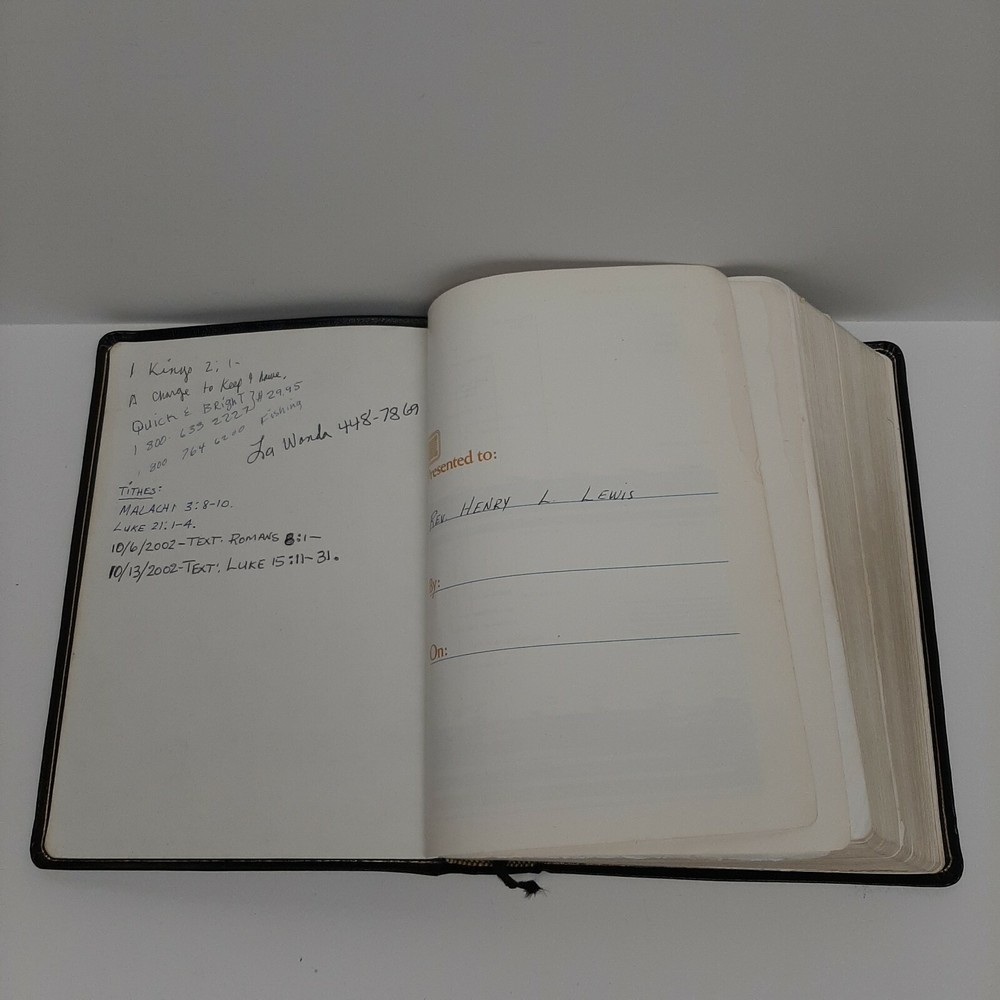 1 Kings 2:1-
A Charge to Keep I have,
Quick & Bright } $29.95
1 800 633 2222
1 800 764 6200 Fishing
La Wonda 448-7869
TITHES:
MALACHI 3:8-10.
LUKE 21:1-4.
10/6/2002-TEXT: ROMANS 8:1-
10/13/2002-TEXT: LUKE 15:11-31.
resented to:
REV. HENRY L. LEWIS
By:
On: